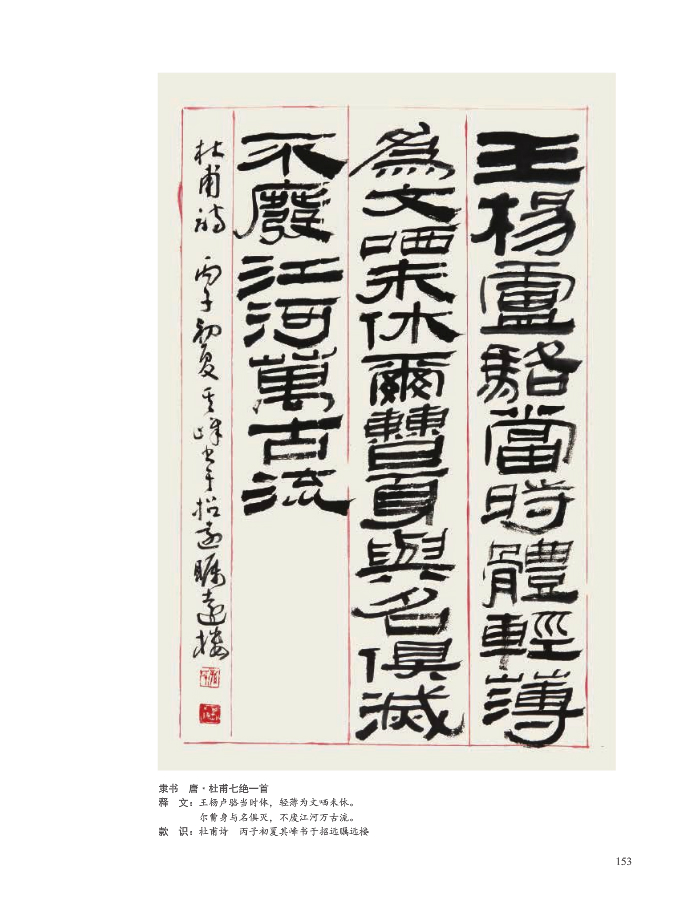 王楊盧駱當時體輕薄
爲文哂未休爾曹身與名俱滅
不廢江河萬古流
杜甫詩 丙子初夏其峰书于招远瞩远楼
隶书 唐·杜甫七绝一首
释 文：王杨卢骆当时体，轻薄为文哂未休。
尔曹身与名俱灭，不废江河万古流。
款 识：杜甫诗 丙子初夏其峰书于招远瞩远楼
153